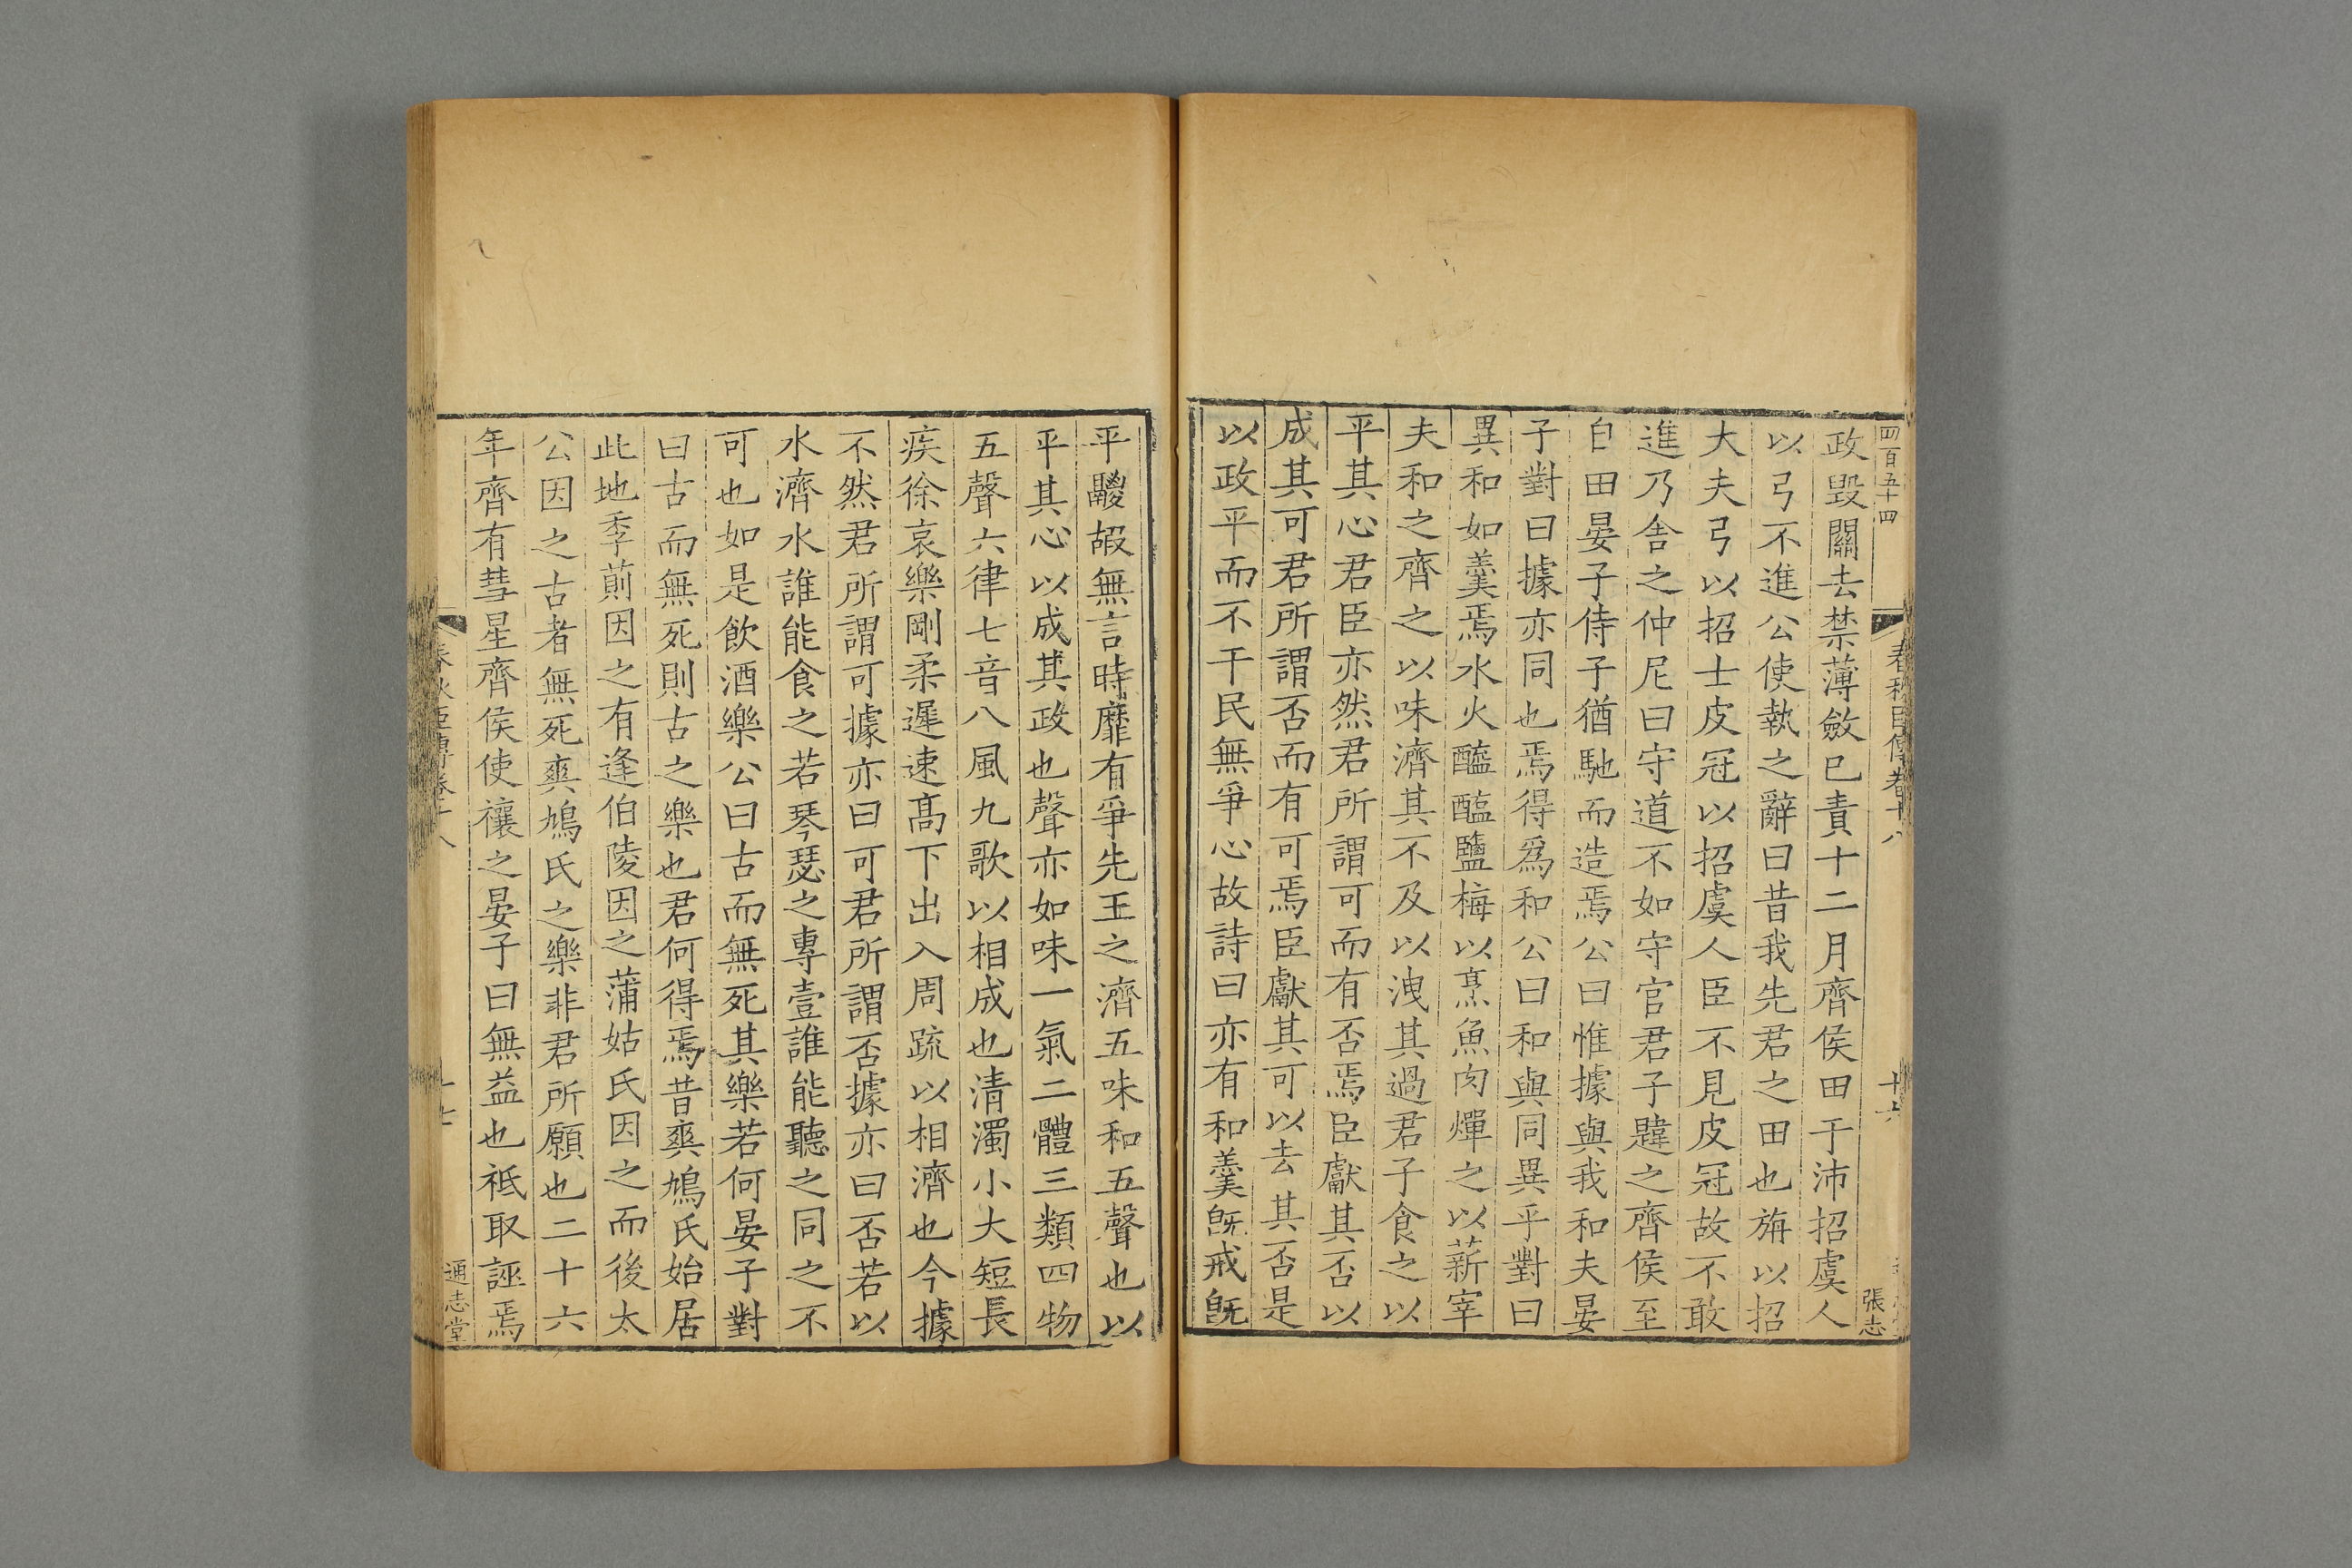 四百五十四
春秋臣傳卷十八
十六
張志
政毀關去禁薄斂已責十二月齊侯田于沛招虞人
以弓不進公使執之辭曰昔我先君之田也旃以招
大夫弓以招士皮冠以招虞人臣不見皮冠故不敢
進乃舍之仲尼曰守道不如守官君子韙之齊侯至
自田晏子侍子猶馳而造焉公曰惟據與我和夫晏
子對曰據亦同也焉得爲和公曰和與同異乎對曰
異和如羹焉水火醯醢鹽梅以烹魚肉燀之以薪宰
夫和之齊之以味濟其不及以洩其過君子食之以
平其心君臣亦然君所謂可而有否焉臣獻其否以
成其可君所謂否而有可焉臣獻其可以去其否是
以政平而不干民無爭心故詩曰亦有和羹旣戒旣
平鬷嘏無言時靡有爭先王之濟五味和五聲也以
平其心以成其政也聲亦如味一氣二體三類四物
五聲六律七音八風九歌以相成也清濁小大短長
疾徐哀樂剛柔遲速高下出入周疏以相濟也今據
不然君所謂可據亦曰可君所謂否據亦曰否若以
水濟水誰能食之若琴瑟之專壹誰能聽之同之不
可也如是飲酒樂公曰古而無死其樂若何晏子對
曰古而無死則古之樂也君何得焉昔爽鳩氏始居
此地季萴因之有逢伯陵因之蒲姑氏因之而後太
公因之古者無死爽鳩氏之樂非君所願也二十六
年齊有彗星齊侯使禳之晏子曰無益也祗取誣焉
春秋臣傳卷十八
十七
通志堂